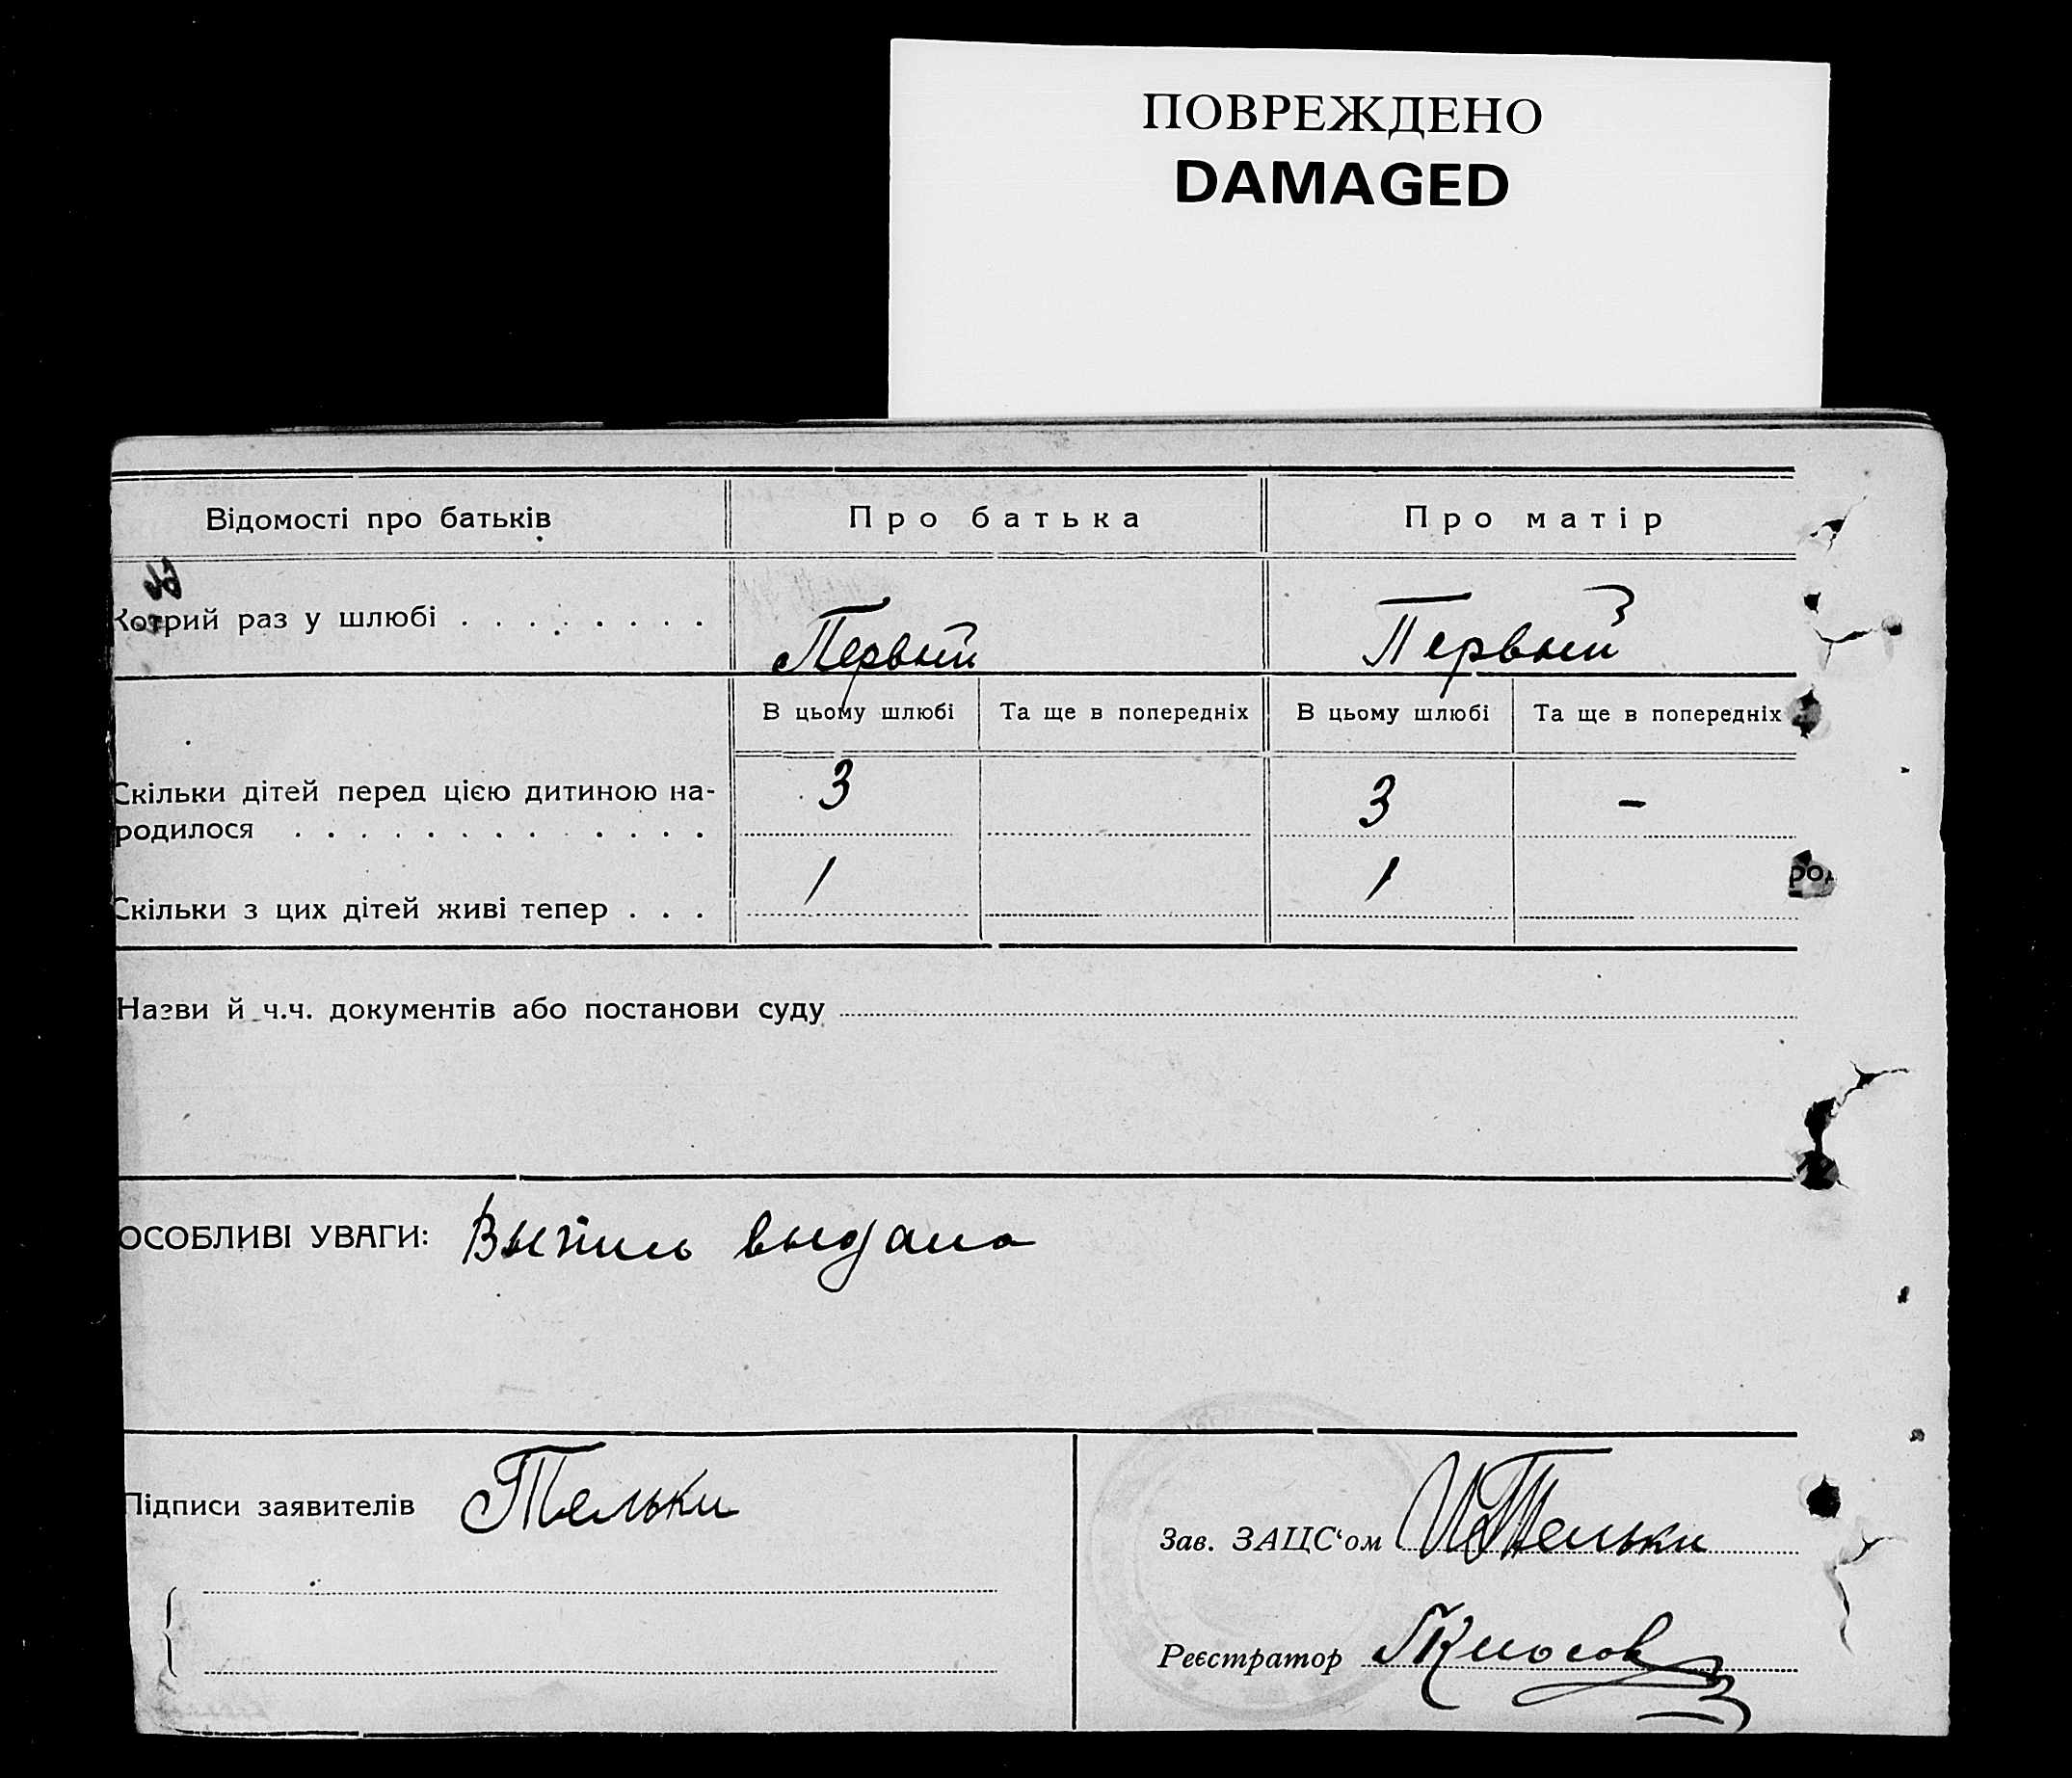 ПОВРЕЖДЕНО
DAMAGED
Відомості про батьків Про батька Про матір
Котрий раз у шлюбі . . . . . . . . Первый Первый
В цьому шлюбі Та ще в попередніх В цьому шлюбі Та ще в попередніх
Скільки дітей перед цією дитиною на-
родилося . . . . . . . . . . . . . 3 3 -
Скільки з цих дітей живі тепер . . . 1 1
Назви й ч.ч. документів або постанови суду
ОСОБЛИВІ УВАГИ: Выпись выдана
Підписи заявителів Тельки
Зав. ЗАЦС‘ом Тельки
Реєстратор